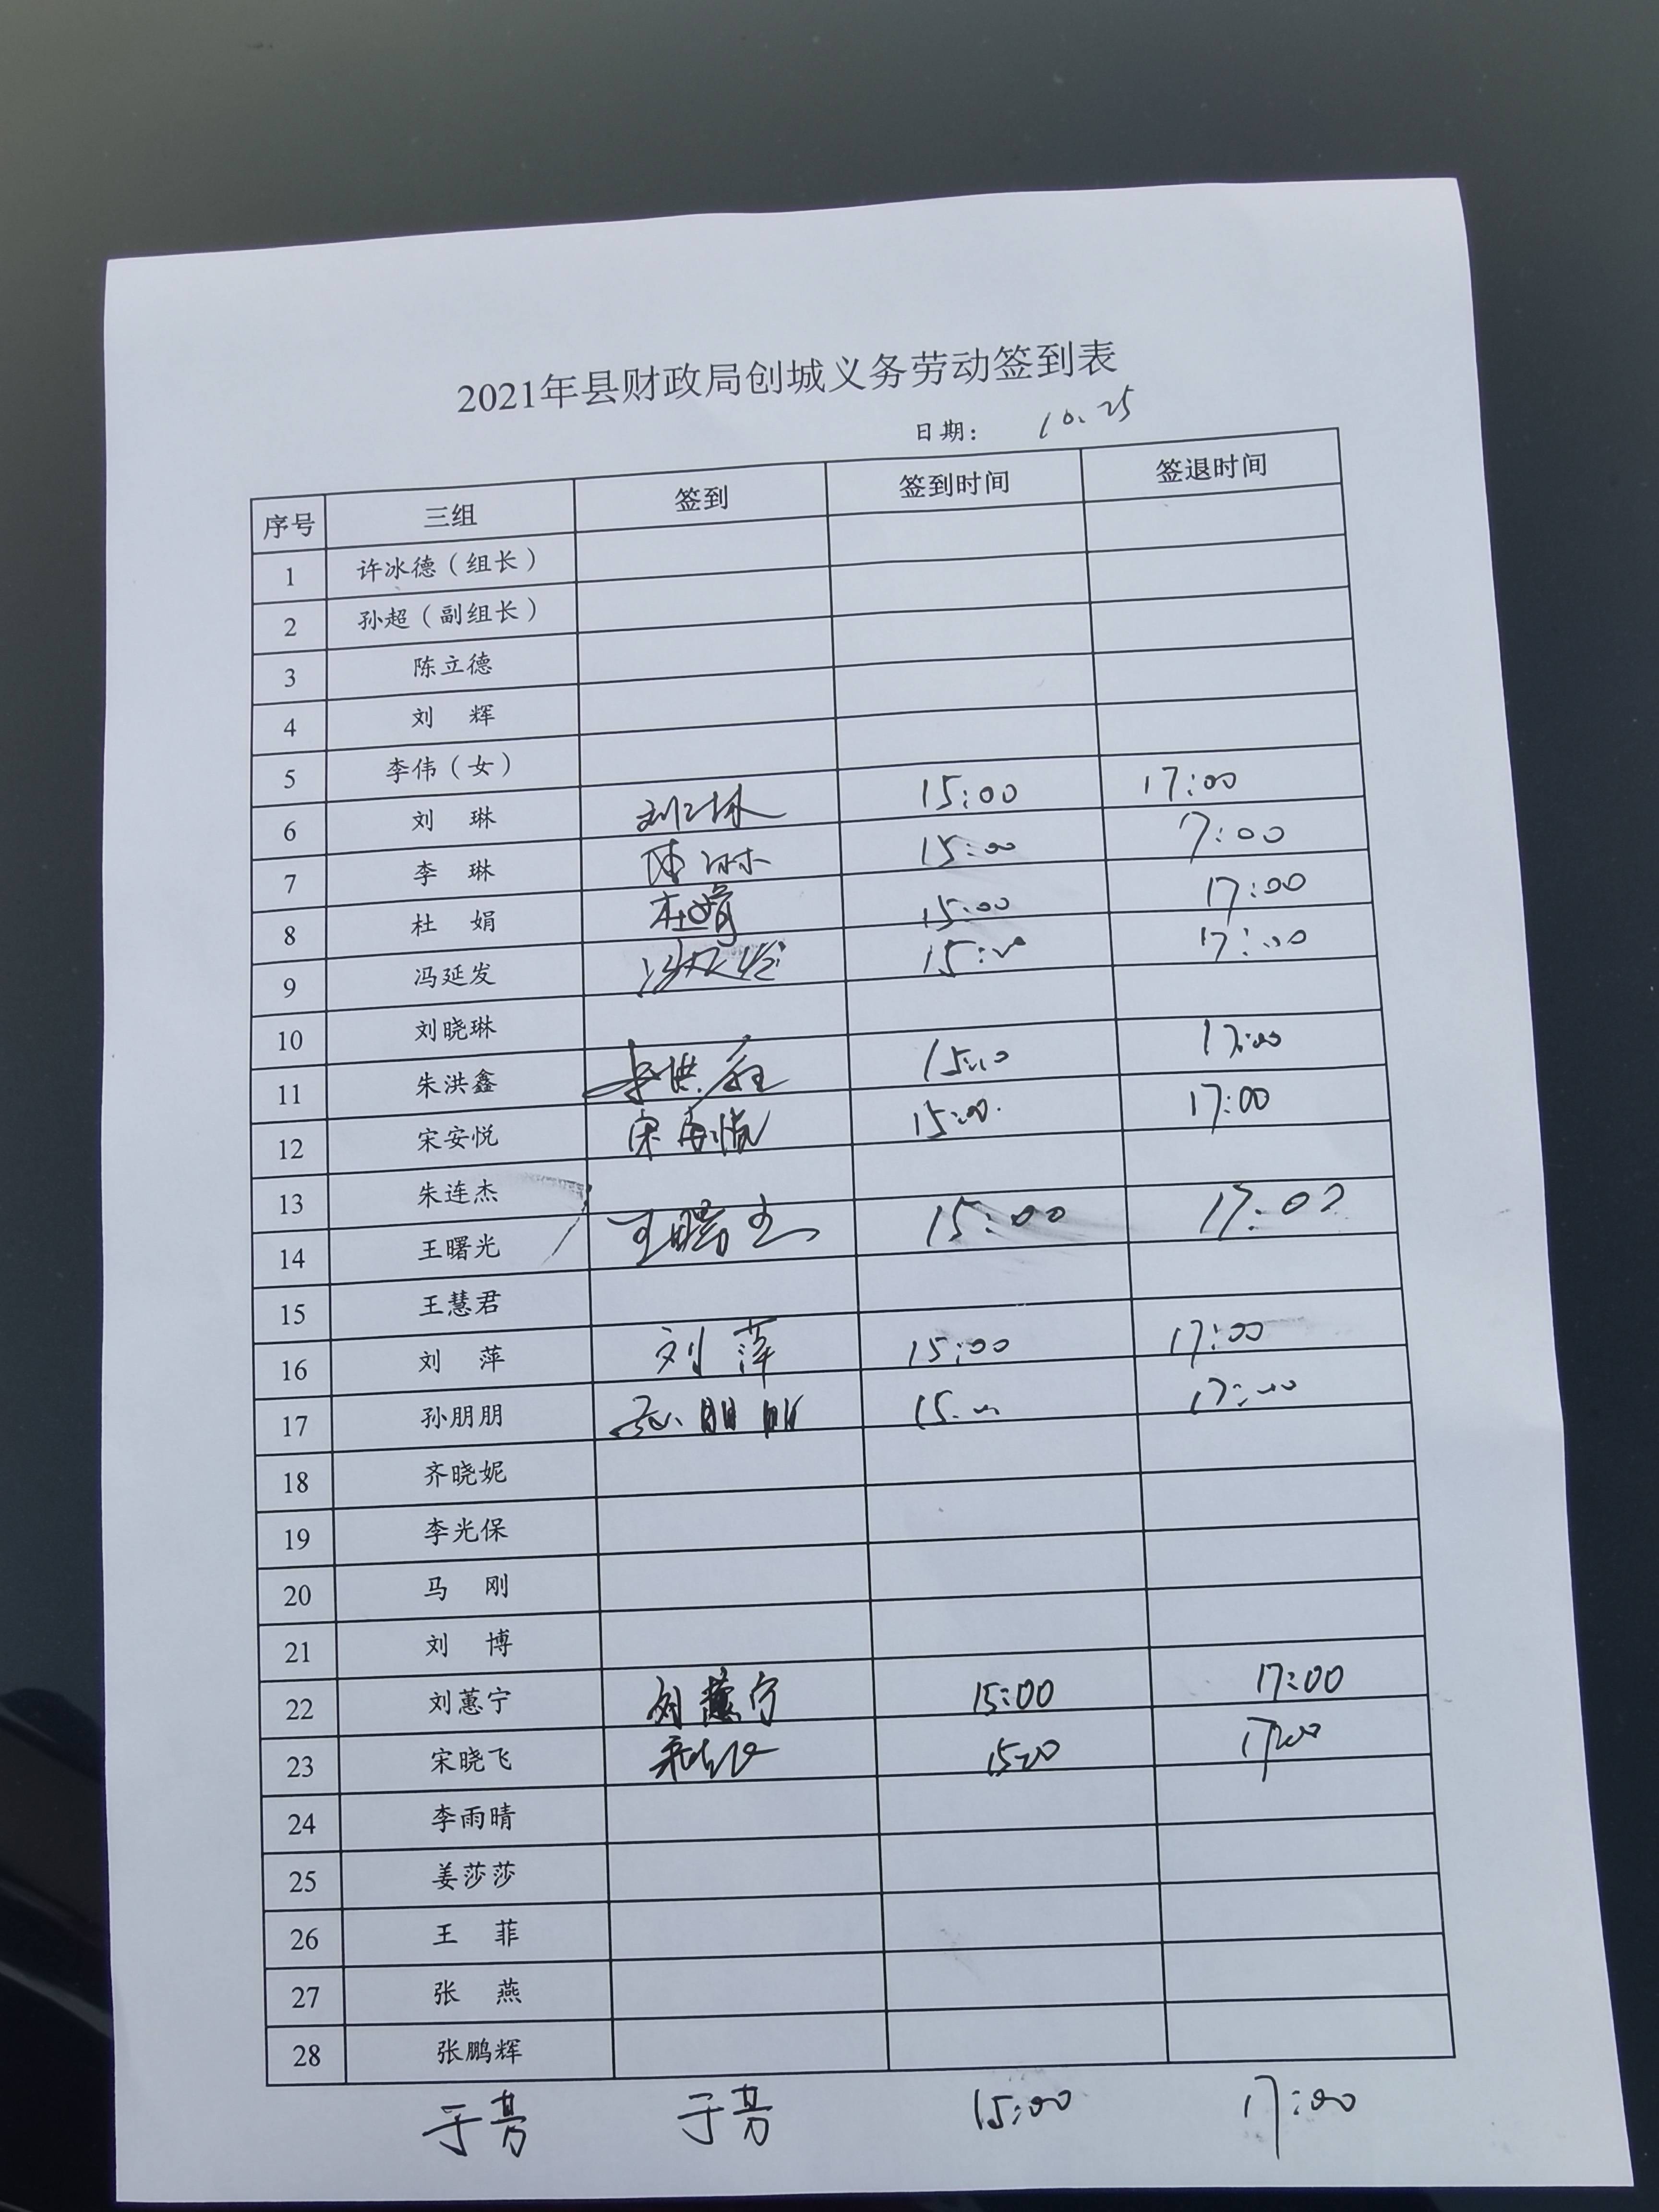 2021年县财政局创城义务劳动签到表
日期： 10.25
序号 三组 签到 签到时间 签退时间
1 许冰德（组长）
2 孙超（副组长）
3 陈立德
4 刘 辉
5 李伟（女）
6 刘 琳 刘琳 15:00 17:00
7 李 琳 15:00 17:00
8 杜 娟 杜娟 15:00 17:00
9 冯延发 冯延发 15:00 17:00
10 刘晓琳
11 朱洪鑫 朱洪鑫 15:00 17:00
12 宋安悦 宋安悦 15:00 17:00
13 朱连杰
14 王曙光 王曙光 15:00 17:00
15 王慧君
16 刘 萍 刘萍 15:00 17:00
17 孙朋朋 孙朋朋 15:00 17:00
18 齐晓妮
19 李光保
20 马 刚
21 刘 博
22 刘蕙宁 刘蕙宁 15:00 17:00
23 宋晓飞 宋晓飞 15:00 17:00
24 李雨晴
25 姜莎莎
26 王 菲
27 张 燕
28 张鹏辉
于芳 于芳 15:00 17:00